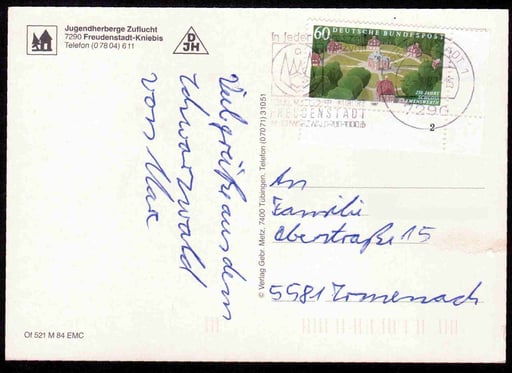 Jugendherberge Zuflucht
7290 Freudenstadt-Kniebis
Telefon (0 78 04) 6 11
DJH
60 DEUTSCHE BUNDESPOST
250 JAHRE
SCHLOSS
CLEMENSWERTH
In jeder
FREUDENSTADT
STADT 1
7290
2
Viele Grüße aus dem
Schwarzwald
von
© Verlag Gebr. Metz, 7400 Tübingen, Telefon (0 70 71) 3 10 51
An
Familie
Oberstraße 15
5581
Of 521 M 84 EMC